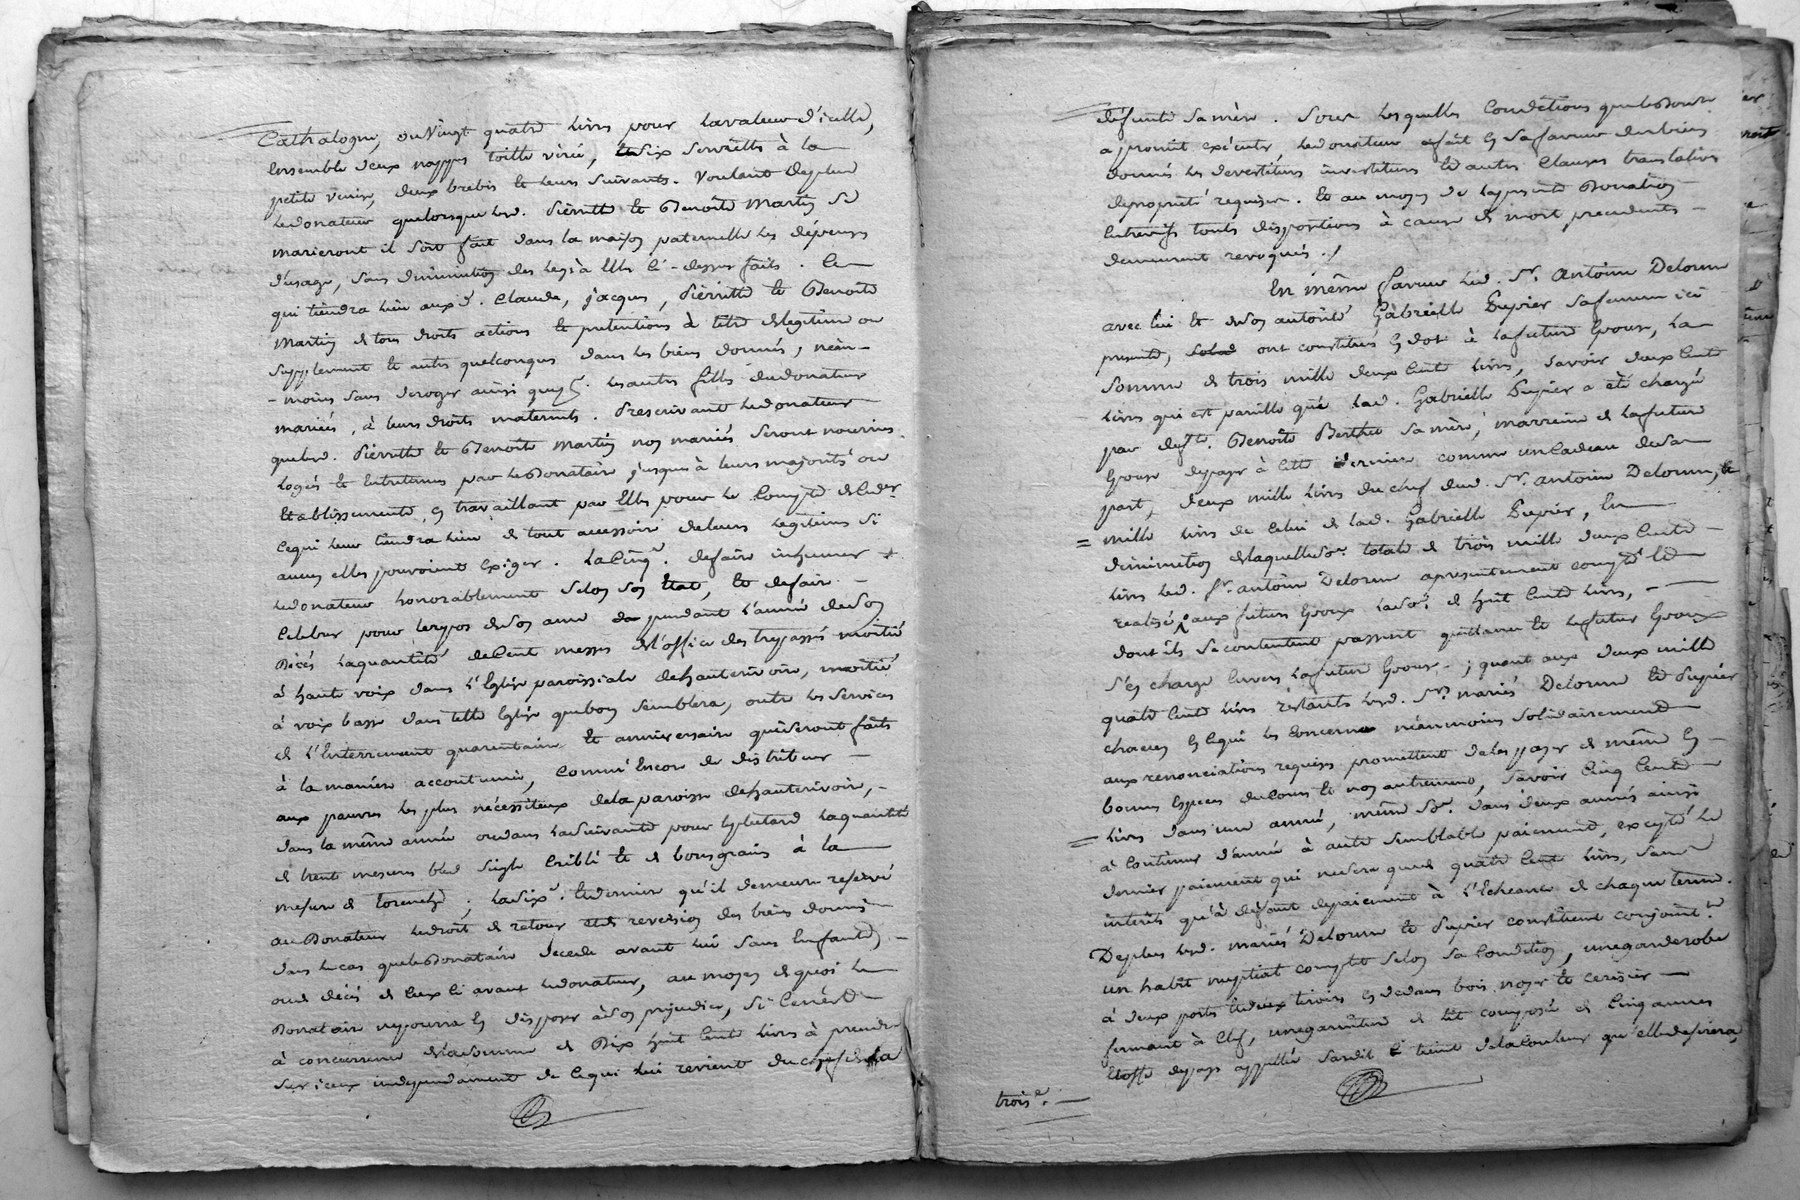 Cathalogne, ou vingt quatre livres pour la valeur d'icelle,
ensemble deux nappes toille virée, et six serviettes à la
petite venise, deux brebis et leurs suivants. Voulant de plus
le donateur que lorsque lesd. Pierrette et Benoite Martin se
marieront il soit fait dans la maison paternelle les dépenses
d'usage, sans diminution des legs à elles ci-dessus faits. Ce
qui tiendra lieu auxd. Claude, jacques, Pierrette et Benoite
Martin de tous droits actions et pretentions à titre de legitime ou
supplement et autres quelconques dans les biens donnés, néan-
-moins sans deroger ainsi que les autres filles du donateur
mariées, à leurs droits maternels. Prescrivant le donateur
que lesd. Pierrette et Benoite Martin non mariées seront nourries
logées et entretenues par le donataire jusques à leurs majorités ou
Etablissements, en travaillant par Elles pour le compte de ce der.r
Ce qui leur tiendra lieu de tout accessoire de leurs legitimes si
aucun elles pouvoient exiger. La cinq.e de faire inhumer
le donateur honorablement selon son Etat, et de faire
Celebrer pour le repos de son ame pendant l'année de son
Décés la quantité de Cent messes de l'office des trepassés moitié
à haute voix dans l'Eglise paroissiale de hauterivoire, moitié
à voix basse dans telle Eglise que bon semblera, outre les services
de l'Enterrement quarentaine et anniversaire qui seront faits
à la maniere accoutumée, comm'Encore de distribuer
aux pauvres les plus nécessiteux de la paroisse de hauterivoire,
dans la même année ou dans la suivante pour le plutard la quantité
de trent mesures bled seigle criblé et de bons grains à la
mesure de ; la six.e et derniere qu'il demeure reservé
au Donateur le droit de retour et de reversion des biens donnés
dans le cas que le Donataire decede avant lui sans Enfants,
ou de décés de ceux ci avant le donateur, au moyen de quoi le
Donataire ne pourra en disposer à son prejudice, si Ce n'est
à concurrence de la somme de Dix huit Cent livres à prendre
sur iceux independament de Ce qui lui revient du chef de la
défunte sa mère. Sous lesquelles Conditions que le Donataire
a promit exécuter le donateur a fait en sa faveur des biens
donnés les devestitures investitures et autres Clauses translatives
de propriété requises. Et au moyen de la presente Donation
Entrevifs touts dispositions à cause de mort precedentes
demeurent revoquées./.
En même faveur led. S.r Antoine Delorme
avec lui et de son autorité Gabrielle Pupier sa femme ici
presente, ont constitués en dot à la future Epouse, la
somme de trois mille deux Cents livres, savoir deux Cents
livres qui est pareille que lad. Gabrielle Pupier a été chargée
par def.te Benoite Berthet sa mère, marreine de la future
Epouse de payer à cette derniere comme un Cadeau de sa
part, deux mille livres du chef dud. S.r Antoine Delorme, et
mille livres de celui de lad. Gabrielle Pupier, En
diminution de laquelle so.e totale de trois mille deux Cents
livres led. S.r antoine Delorme a presentement compté et
realisé aux futurs Epoux la so.e de huit Cents livres,
dont ils se contentent passent quittance et le futur Epoux
s'en charge Envers la future Epouse ; quant aux deux mille
quatre Cents livres restants lesd. S.rs mariés Delorme et Pupier
chacun en ce qui les concerne néanmoins solidairement
aux renonciations requises promettent de les payer de même en
bonnes Especes de Cours et non autrement, savoir Cinq Cents
livres dans une année, même so.e dans deux années ainsi
à continuer d'année à autre semblable paiement, excepté le
dernier paiement qui ne sera que de quatre Cent livres, sans
interêts qu'à défaut de paiement à l'Echeance de chaque terme.
De plus lesd. mariés Delorme et Pupier constituent conjoint.t
un habit nuptial complet selon sa Condition, une garderobe
à deux portes et deux tiroirs en dedans bois noyer et cerisier
fermant à Clef, une garniture de lit composée de Cinq aunes
Etoffe de pays appellée sardit teint de la Couleur qu'elle desirera,
trois.e